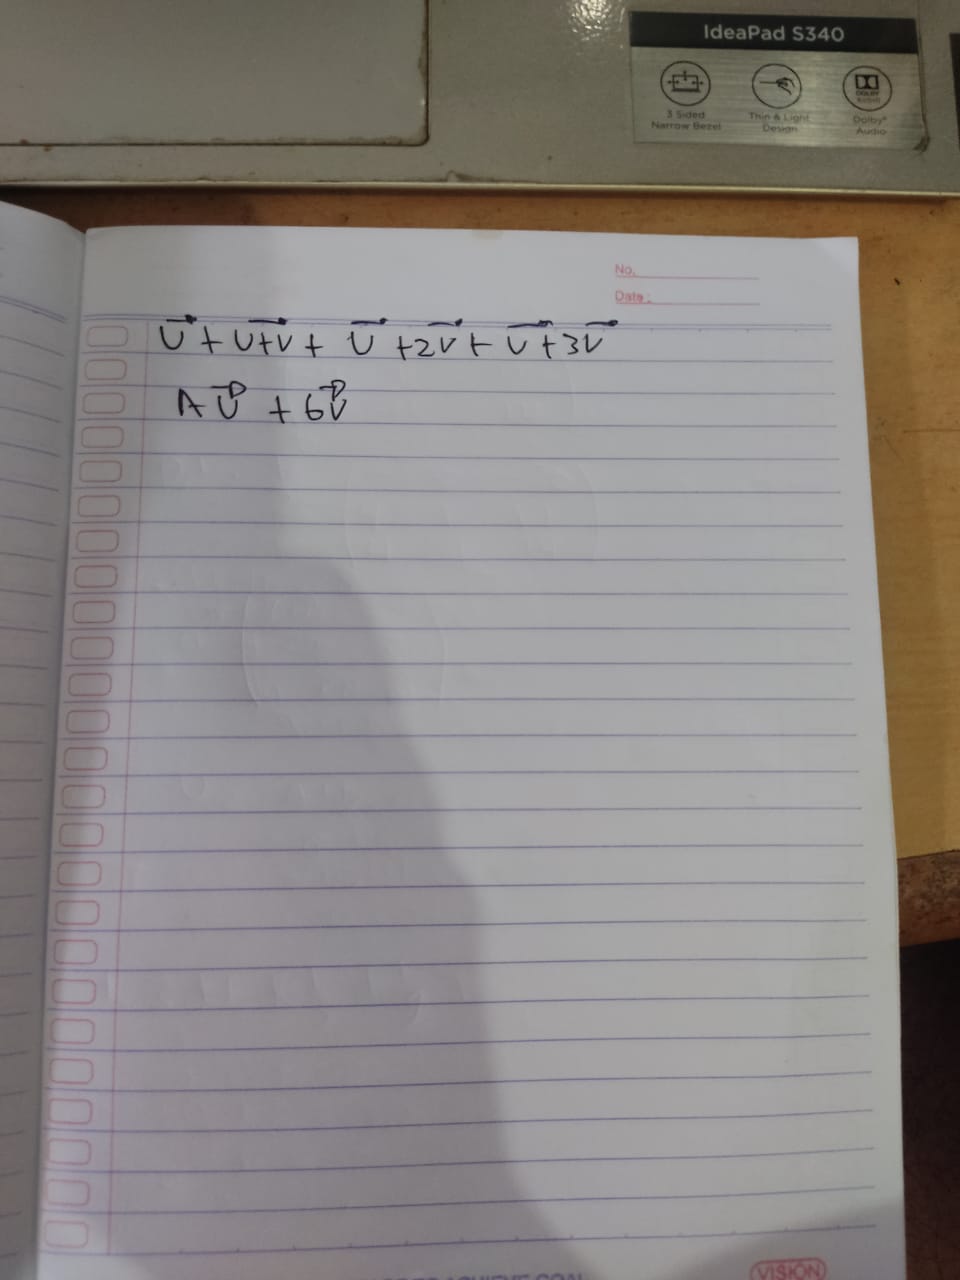 IdeaPad S340
3 Sided
Narrow Bezel
Thin & Light
Design
DOLBY
AUDIO
Dolby®
Audio
No.
Date :
U⃗ + U+V⃗ + U⃗ + 2V⃗ + U⃗ + 3V⃗
A U⃗ + 6V⃗
VISION